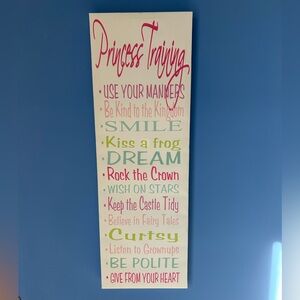 Princess Training
• USE YOUR MANNERS
• Be Kind to the Kingdom
• SMILE
• Kiss a frog
• DREAM
• Rock the Crown
• WISH ON STARS
• Keep the Castle Tidy
• Believe in Fairy Tales
• Curtsy
• Listen to Grownups
• BE POLITE
• GIVE FROM YOUR HEART